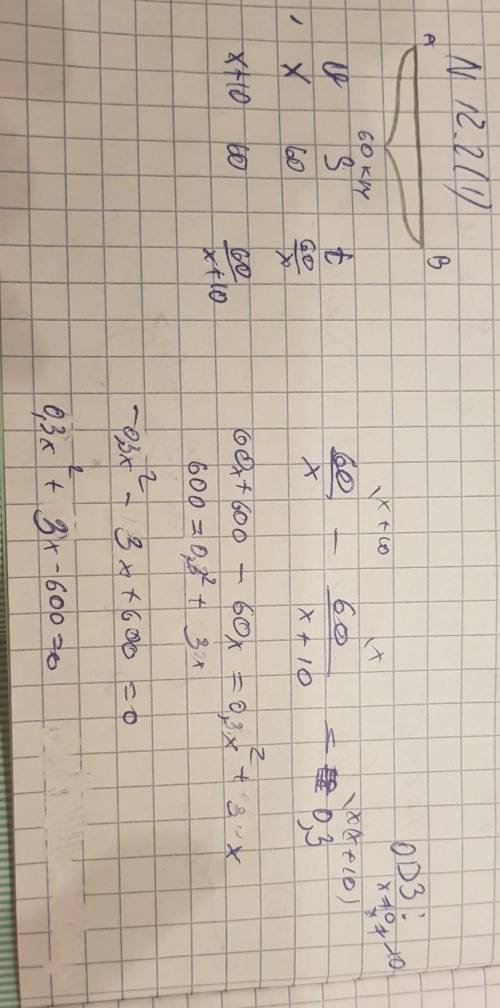 N 12.2(1)
A B
60 км
v S t
x 60 60/x
x+10 60 60/(x+10)
ОДЗ: x≠0
60/x \x+10 − 60/(x+10) \x = 0,3 \x(x+10)
60x + 600 − 60x = 0,3x² + 3x
600 = 0,3² + 3x
−0,3x² − 3x + 600 = 0
0,3x² + 3x − 600 = 0